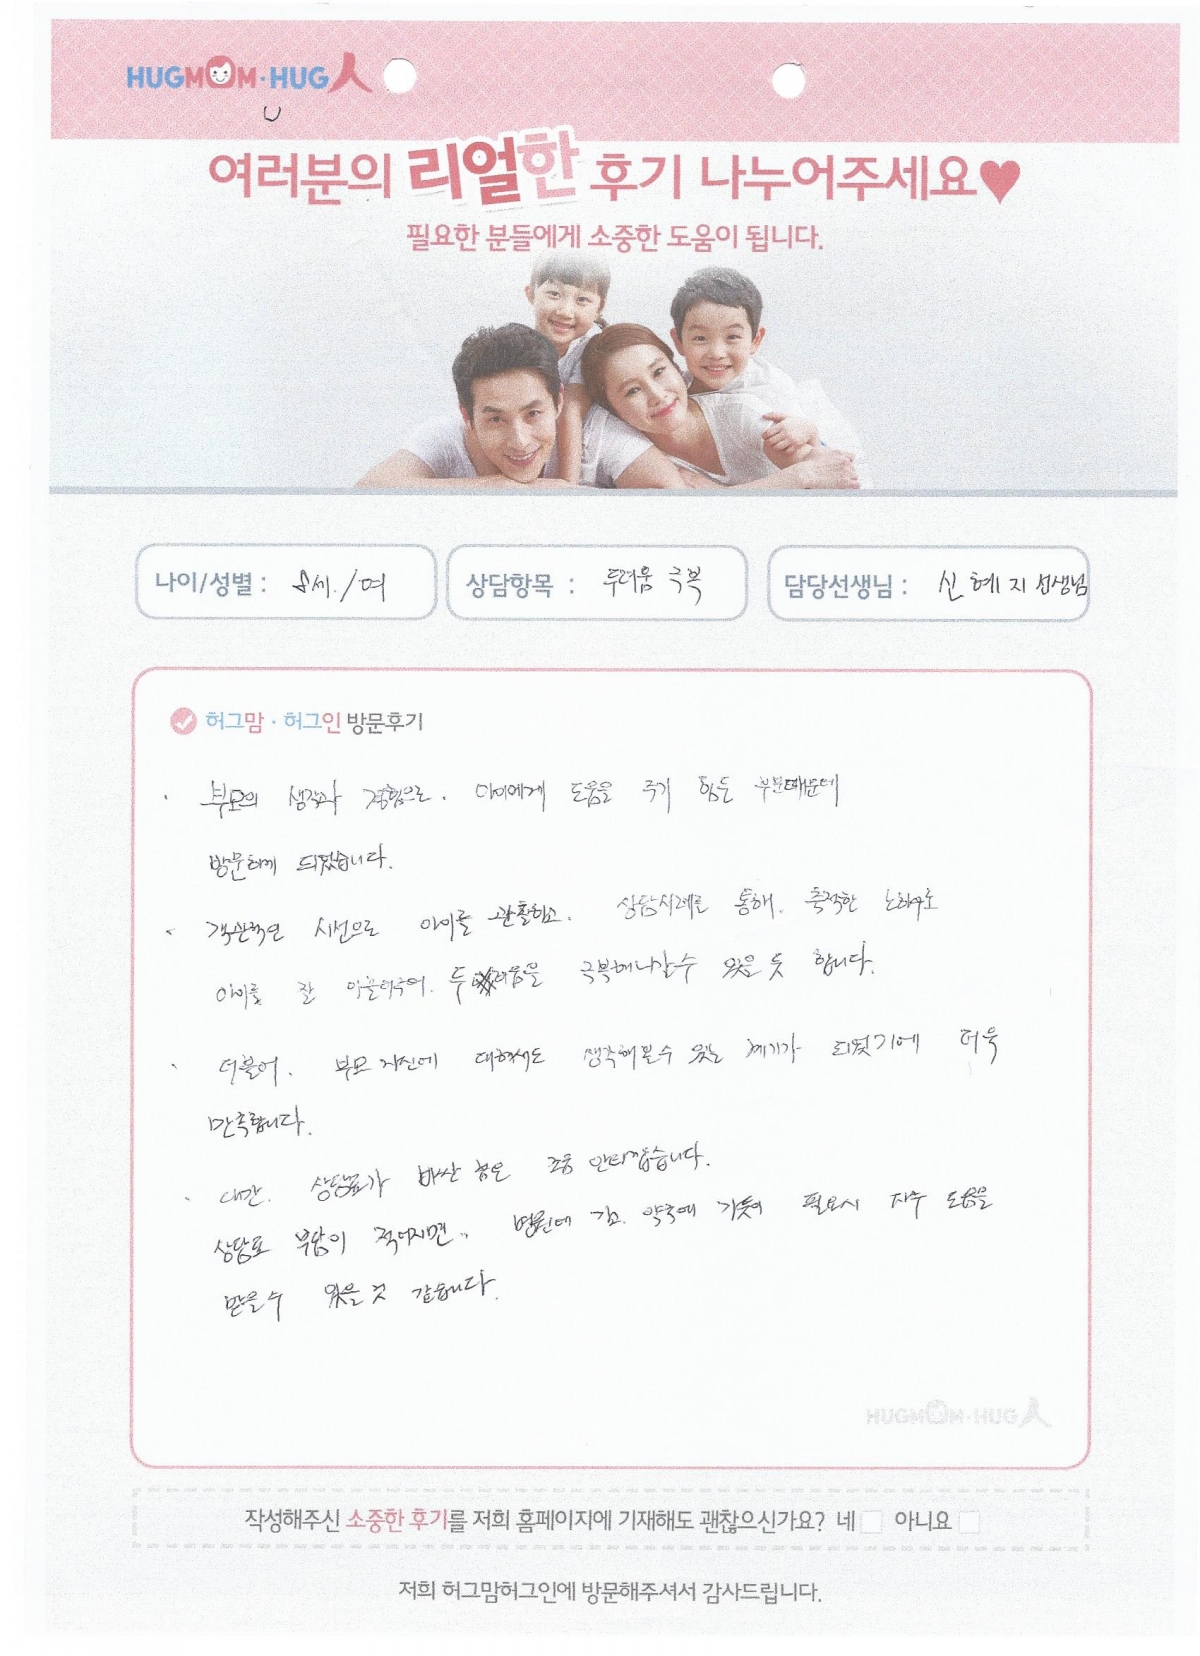 HUGMOM·HUG人
여러분의 리얼한 후기 나누어주세요♥
필요한 분들에게 소중한 도움이 됩니다.
나이/성별 : 8세./여
상담항목 : 두려움 극복
담당선생님 : 신혜지 선생님
허그맘·허그인 방문후기
· 부모의 생각과 경험으로. 아이에게 도움을 주기 힘든 부분때문에
방문하게 되었습니다.
· 객관적인 시선으로 아이를 관찰하고. 상담사례를 통해. 축적한 노하우로
아이를 잘 이끌어주어. 두려움을 극복해나갈수 있을 듯 합니다.
· 더불어. 부모 자신에 대해서도 생각해볼수 있는 계기가 되었기에 더욱
만족합니다.
· 다만. 상담료가 비싼 점은 조금 안타깝습니다.
상담료 부담이 적어지면.. 병원에 가고. 약국에 가듯이 필요시 자주 도움을
받을수 있을것 같습니다.
HUGMOM·HUG人
작성해주신 소중한 후기를 저희 홈페이지에 기재해도 괜찮으신가요? 네 아니요
저희 허그맘허그인에 방문해주셔서 감사드립니다.